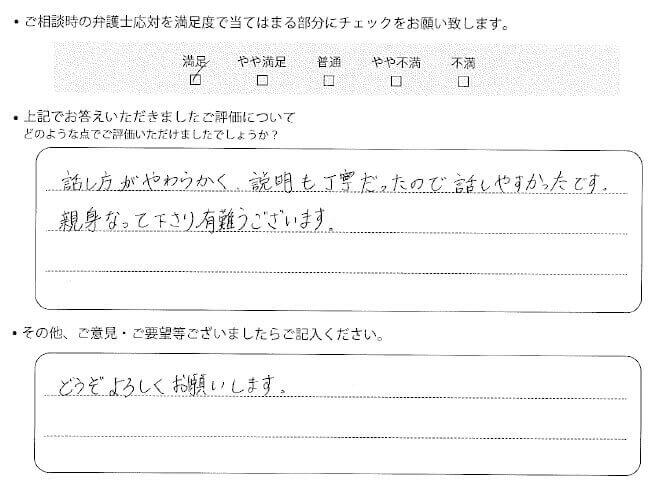 ・ご相談時の弁護士応対を満足度で当てはまる部分にチェックをお願い致します。
満足 やや満足 普通 やや不満 不満
・上記でお答えいただきましたご評価について
どのような点でご評価いただけましたでしょうか？
話し方がやわらかく、説明も丁寧だったので話しやすかったです。
親身なって下さり有難うございます。
・その他、ご意見・ご要望等ございましたらご記入ください。
どうぞよろしくお願いします。